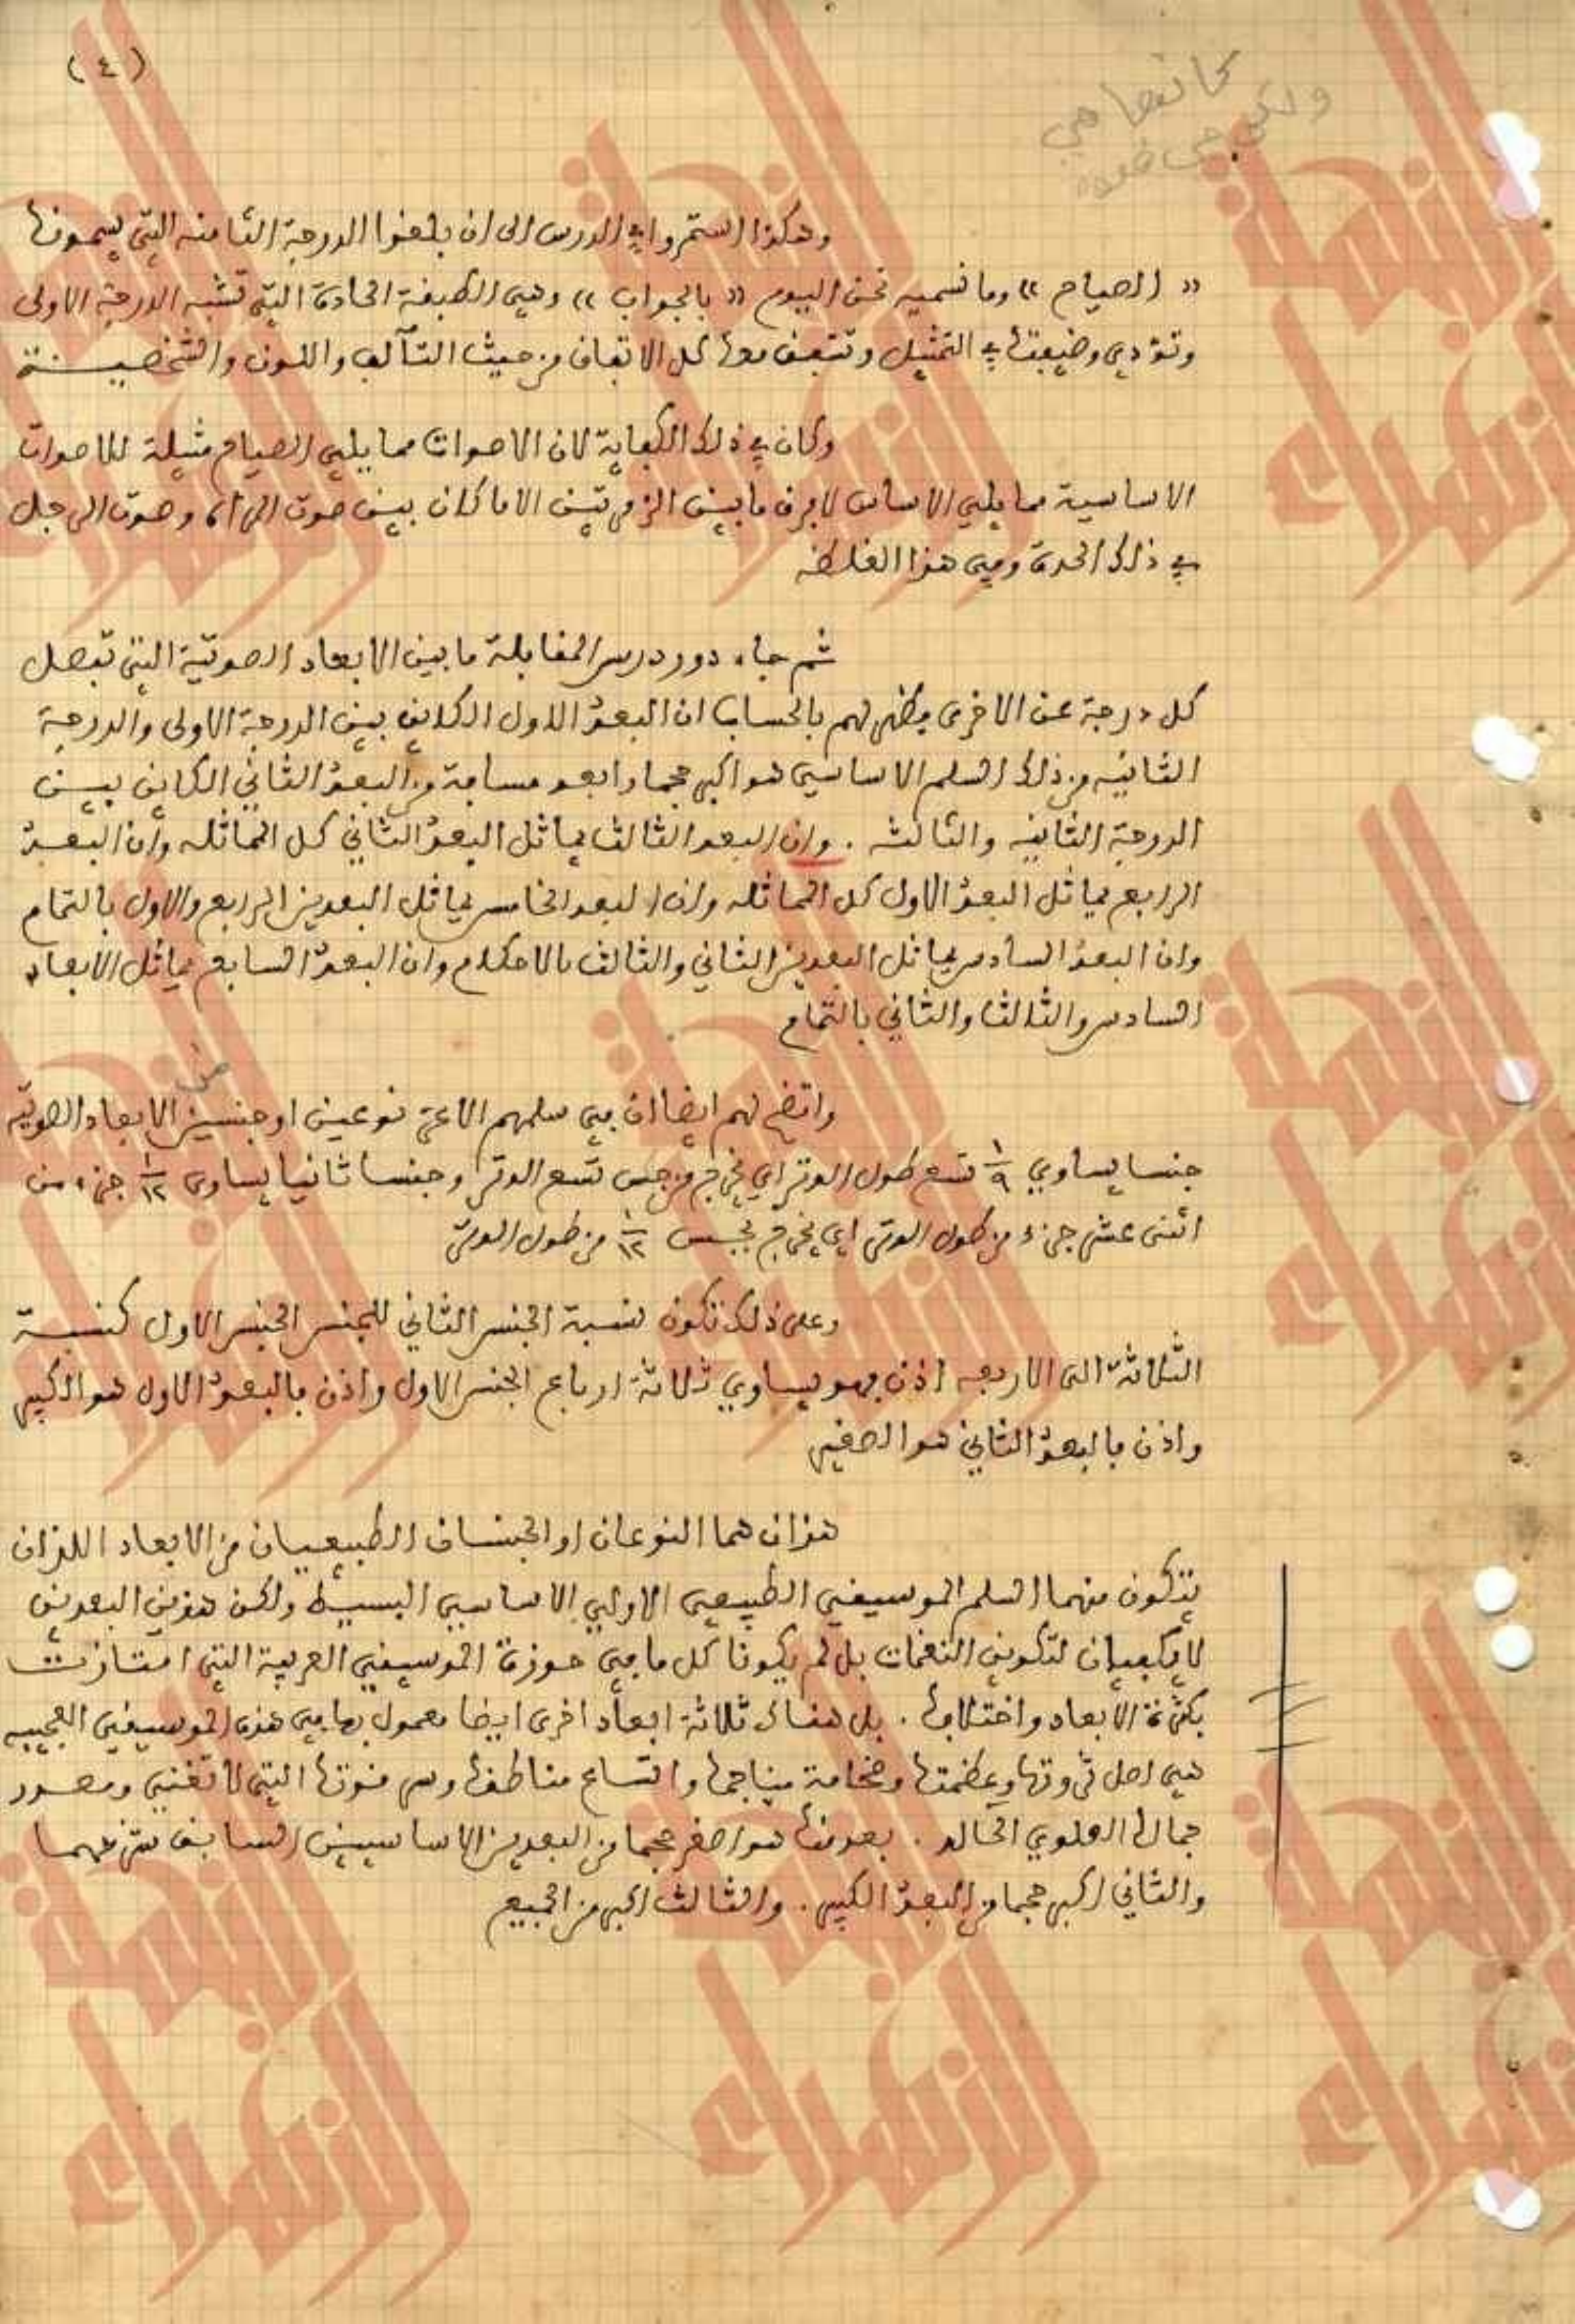 (٤)
كما تقدما هي
ولكن هي
وهكذا استمروا في الدرس الى ان بلغوا الدرجة الثامنه التي يسمونها
« الصياح » وما نسميه نحن اليوم « بالجواب » وهي الطبقة الحادة التي تشبه الدرجة الاولى
وتؤدي وضيفتها في التمثيل وتتفق معها كل الاتفاق من حيث التآلف واللون والشخصيـــة
وكان في ذلك الكفاية لان الاصوات مما يلي الصياح مثيلة للاصوات
الاساسية مما يلي الاساس لا فرق ما بين الزمرتين الا ما كان بين صوت المرأة وصوت الرجل
في ذلك الحدة وفي هذا الغلظه
ثم جاء دور درس المقابلة ما بين الابعاد الصوتية التي تفصل
كل درجة عن الاخرى فظهر لهم بالحساب ان البعدُ الاول الكاين بين الدرجة الاولى والدرجة
الثانيه من ذلك السلم الاساسي هو اكبر حجما وابعد مسافة من البعدُ الثاني الكاين بيـن
الدرجة الثانيه والثالثه . وان البعد الثالث يماثل البعدُ الثاني كل المماثله وان البعـدُ
الرابع يماثل البعدُ الاول كل المماثله وان البعد الخامس يماثل البعدين الرابع والاول بالتمام
وان البعدُ السادس يماثل البعدين الثاني والثالث بالاحكام وان البعدُ السابع يماثل الابعاد
السادس والثالث والثاني بالتمام
من
واتضح لهم ايضا ان في سلمهم الاعى نوعين او جنسين الابعاد الصوتيه
جنسا يساوي ١/٩ تسع طول الوتر اي يخرج من جس تسع الوتر وجنسا ثانيا يساوى ١/١٢ جزء من
اثنى عشر جزء من طول الوتر اي يخرج بجس ١/١٢ من طول الوتر
وعلى ذلك تكون نسبة الجنس الثاني للجنس الجنس الاول كنسبـــة
الثلاثة الى الاربعه اذن فهو يساوي ثلاثة ارباع الجنس الاول واذن فالبعدُ الاول هو الكبير
واذن فالبعدُ الثاني هو الصغير
هذان هما النوعان او الجنسان الطبيعيان من الابعاد اللذان
يتكون منهما السلم الموسيقي الطبيعي الاولي الاساسي البسيط ولكن هذين البعدين
لا يكفيان لتكوين النغمات بل لم يكونا كل ما في حوزة الموسيقي العربية التي امتازت
بكثرة الابعاد واختلافها . بل هناك ثلاثة ابعاد اخرى ايضا معمول بها في هذه الموسيقي العجيبه
هي اصل ثروتها وعظمتها وفخامة مناجمها واتساع مناطقها وسر فنونها التي لا تفنى ومصدر
جمالها العلوي الخالد . بعد منها هو اصغر حجما من البعدين الاساسيين السابق شرحهما
والثاني اكبر حجما من البعدُ الكبير . والثالث اكبر من الجميع